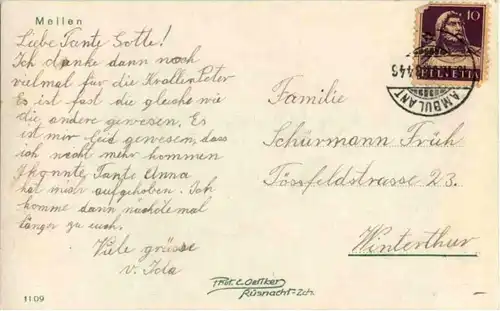 Meilen
Liebe Tante Gotte!
Ich danke dann noch
vielmal für die
Es ist fast die gleiche wie
die andere gewesen. Es
ist mir leid gewesen, dass
ich nicht mehr kommen
konnte, Tante Anna
hat mich aufgehoben. Ich
komme dann nächstemal
länger zu euch.
Viele grüsse
v. Ida
1109
10
HELVETIA
AMBULANT
Familie
Schürmann Früh
Tössfeldstrasse 23.
Winterthur
Phot. C. Oetiker
Küsnacht-Zch.